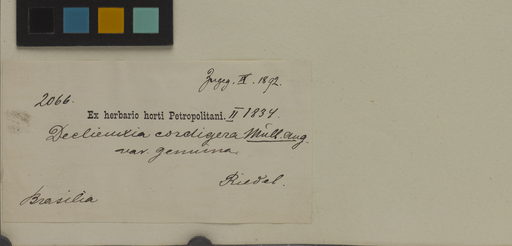 Ingeg. IX. 1892.
2066.
Ex herbario horti Petropolitani. II 1834.
Declieuxia cordigera Müll. Arg.
var. genuina.
Riedel.
Brasilia